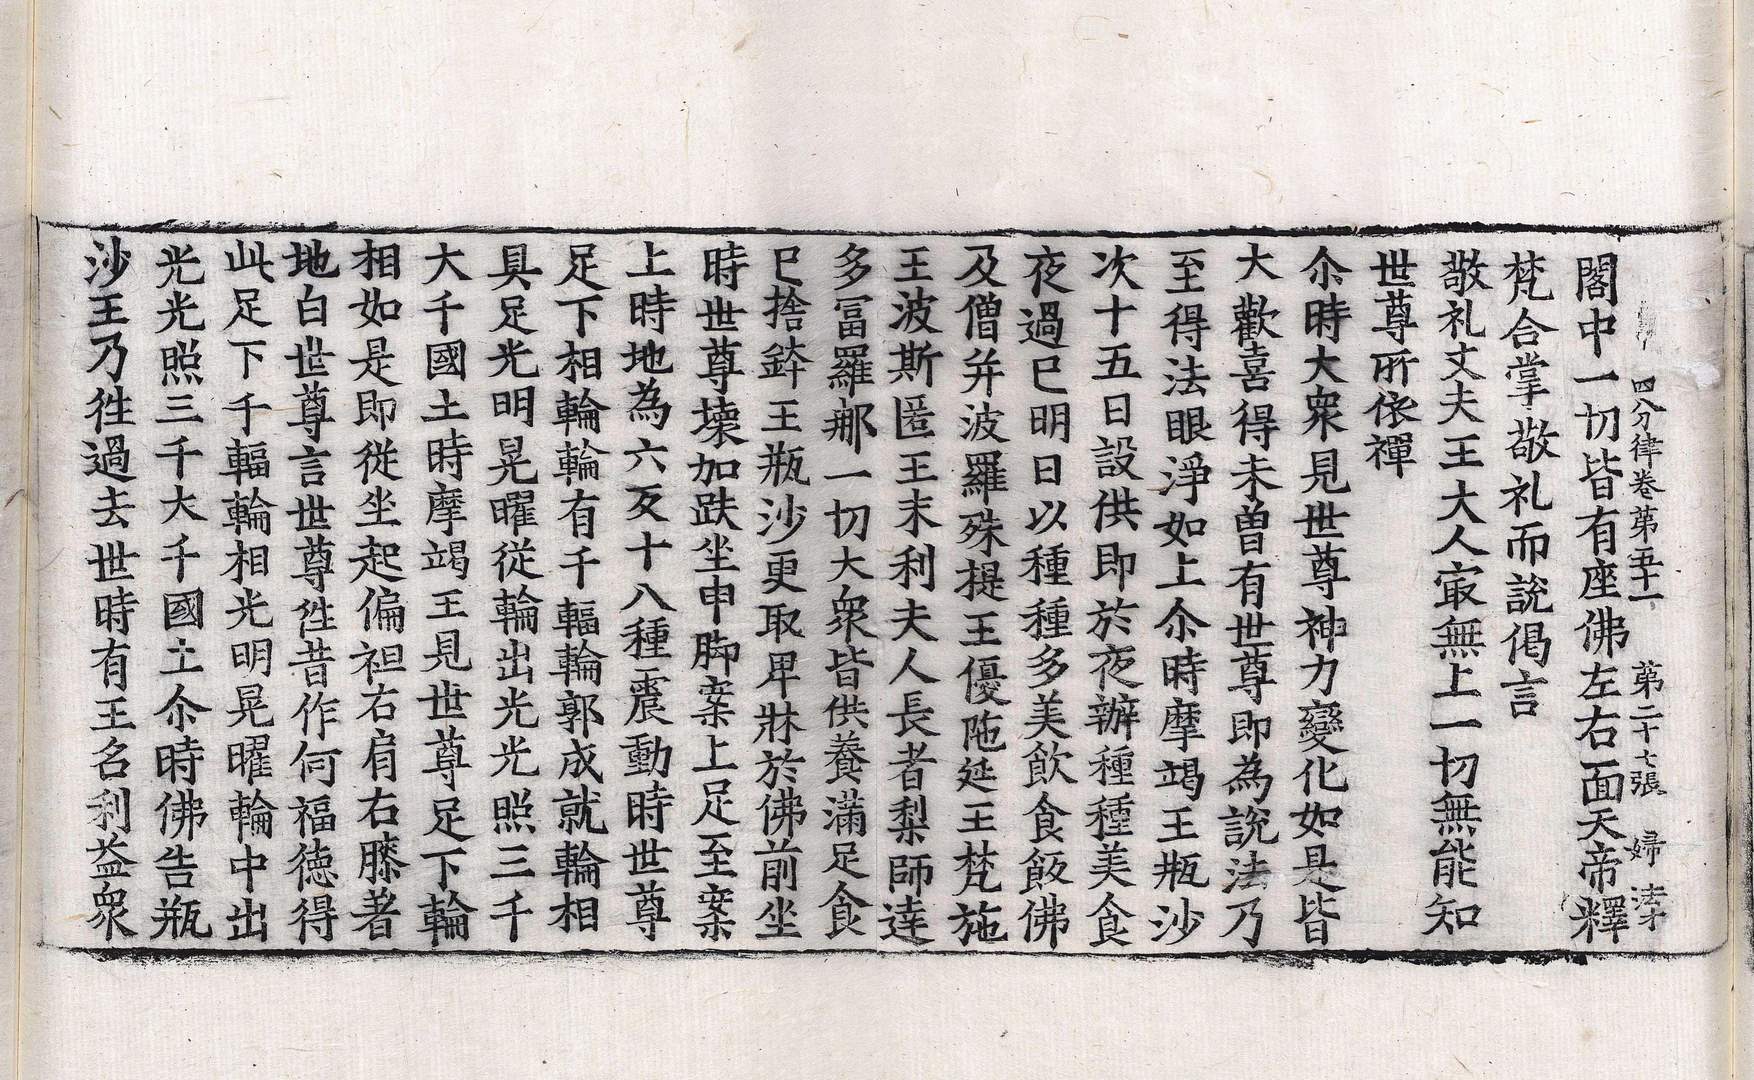 四分律卷第五十一 第二十七張 婦 法才
閣中一切皆有座佛左右面天帝釋
梵合掌敬礼而說偈言
敬礼丈夫王大人㝡無上一切無能知
世尊所依禪
尒時大衆見世尊神力變化如是皆
大歡喜得未曽有世尊即為說法乃
至得法眼淨如上尒時摩竭王瓶沙
次十五日設供即於夜辦種種美食
夜過已明日以種種多美飲食飯佛
及僧并波羅殊提王優陁延王梵施
王波斯匿王末利夫人長者梨師達
多冨羅那一切大衆皆供養滿足食
已捨鉢王瓶沙更取卑牀於佛前坐
時世尊壞加趺坐申脚案上足至案
上時地為六反十八種震動時世尊
足下相輪輪有千輻輪郭成就輪相
具足光明晃曜從輪出光光照三千
大千國土時摩竭王見世尊足下輪
相如是即從坐起偏袒右肩右膝著
地白世尊言世尊徃昔作何福德得
此足下千輻輪相光明晃曜輪中出
光光照三千大千國土尒時佛告瓶
沙王乃徃過去世時有王名利益衆